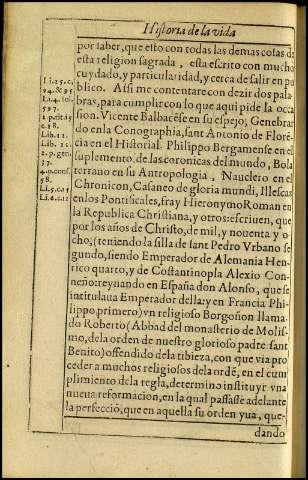 Historia de la vida
por saber, que esto con todas las demas cosas de
esta religion sagrada, esta escrito con mucho
cuydado, y particularidad, y cerca de salir en pu
blico. Assi me contentare con dezir dos pala-
bras, para cumplir con lo que aqui pide la occa
sion. Vicente Balbacēse en su espejo, Genebrar
do en la Conographia, sant Antonio de Florē
cia en el Historial. Philippo Bergamense en el
suplemento, de las coronicas del mundo, Bola
terrano en su Antropologia, Nauclero en el
Chronicon, Casaneo de gloria mundi, Illescas
en los Pontificales, fray Hieronymo Roman en
la Republica Christiana, y otros: escriuen, que
por los años de Christo, de mil, y nouenta y o-
cho; (teniendo la silla de sant Pedro Vrbano se
gundo, siendo Emperador de Alemania Hen-
rico quarto, y de Costantinopla Alexio Con-
neno: reynando en España don Alonso, que se
intitulaua Emperador della: y en Francia Phi-
lippo primero) vn religioso Borgoñon llama-
do Roberto (Abbad del monasterio de Molis-
mo, de la orden de nuestro glorioso padre sant
Benito) offendido de la tibieza, con que via pro
ceder a muchos religiosos de la ordē, en el cum
plimiento de la regla, determino instituyr vna
nueua reformacion, en la qual passasse adelante
la perfecciō, que en aquella su orden yua, que-
dando
Li. 25. c.
94. & 95
597.
c. 18.
Lib. 11.
Lib. 21.
37.
58.